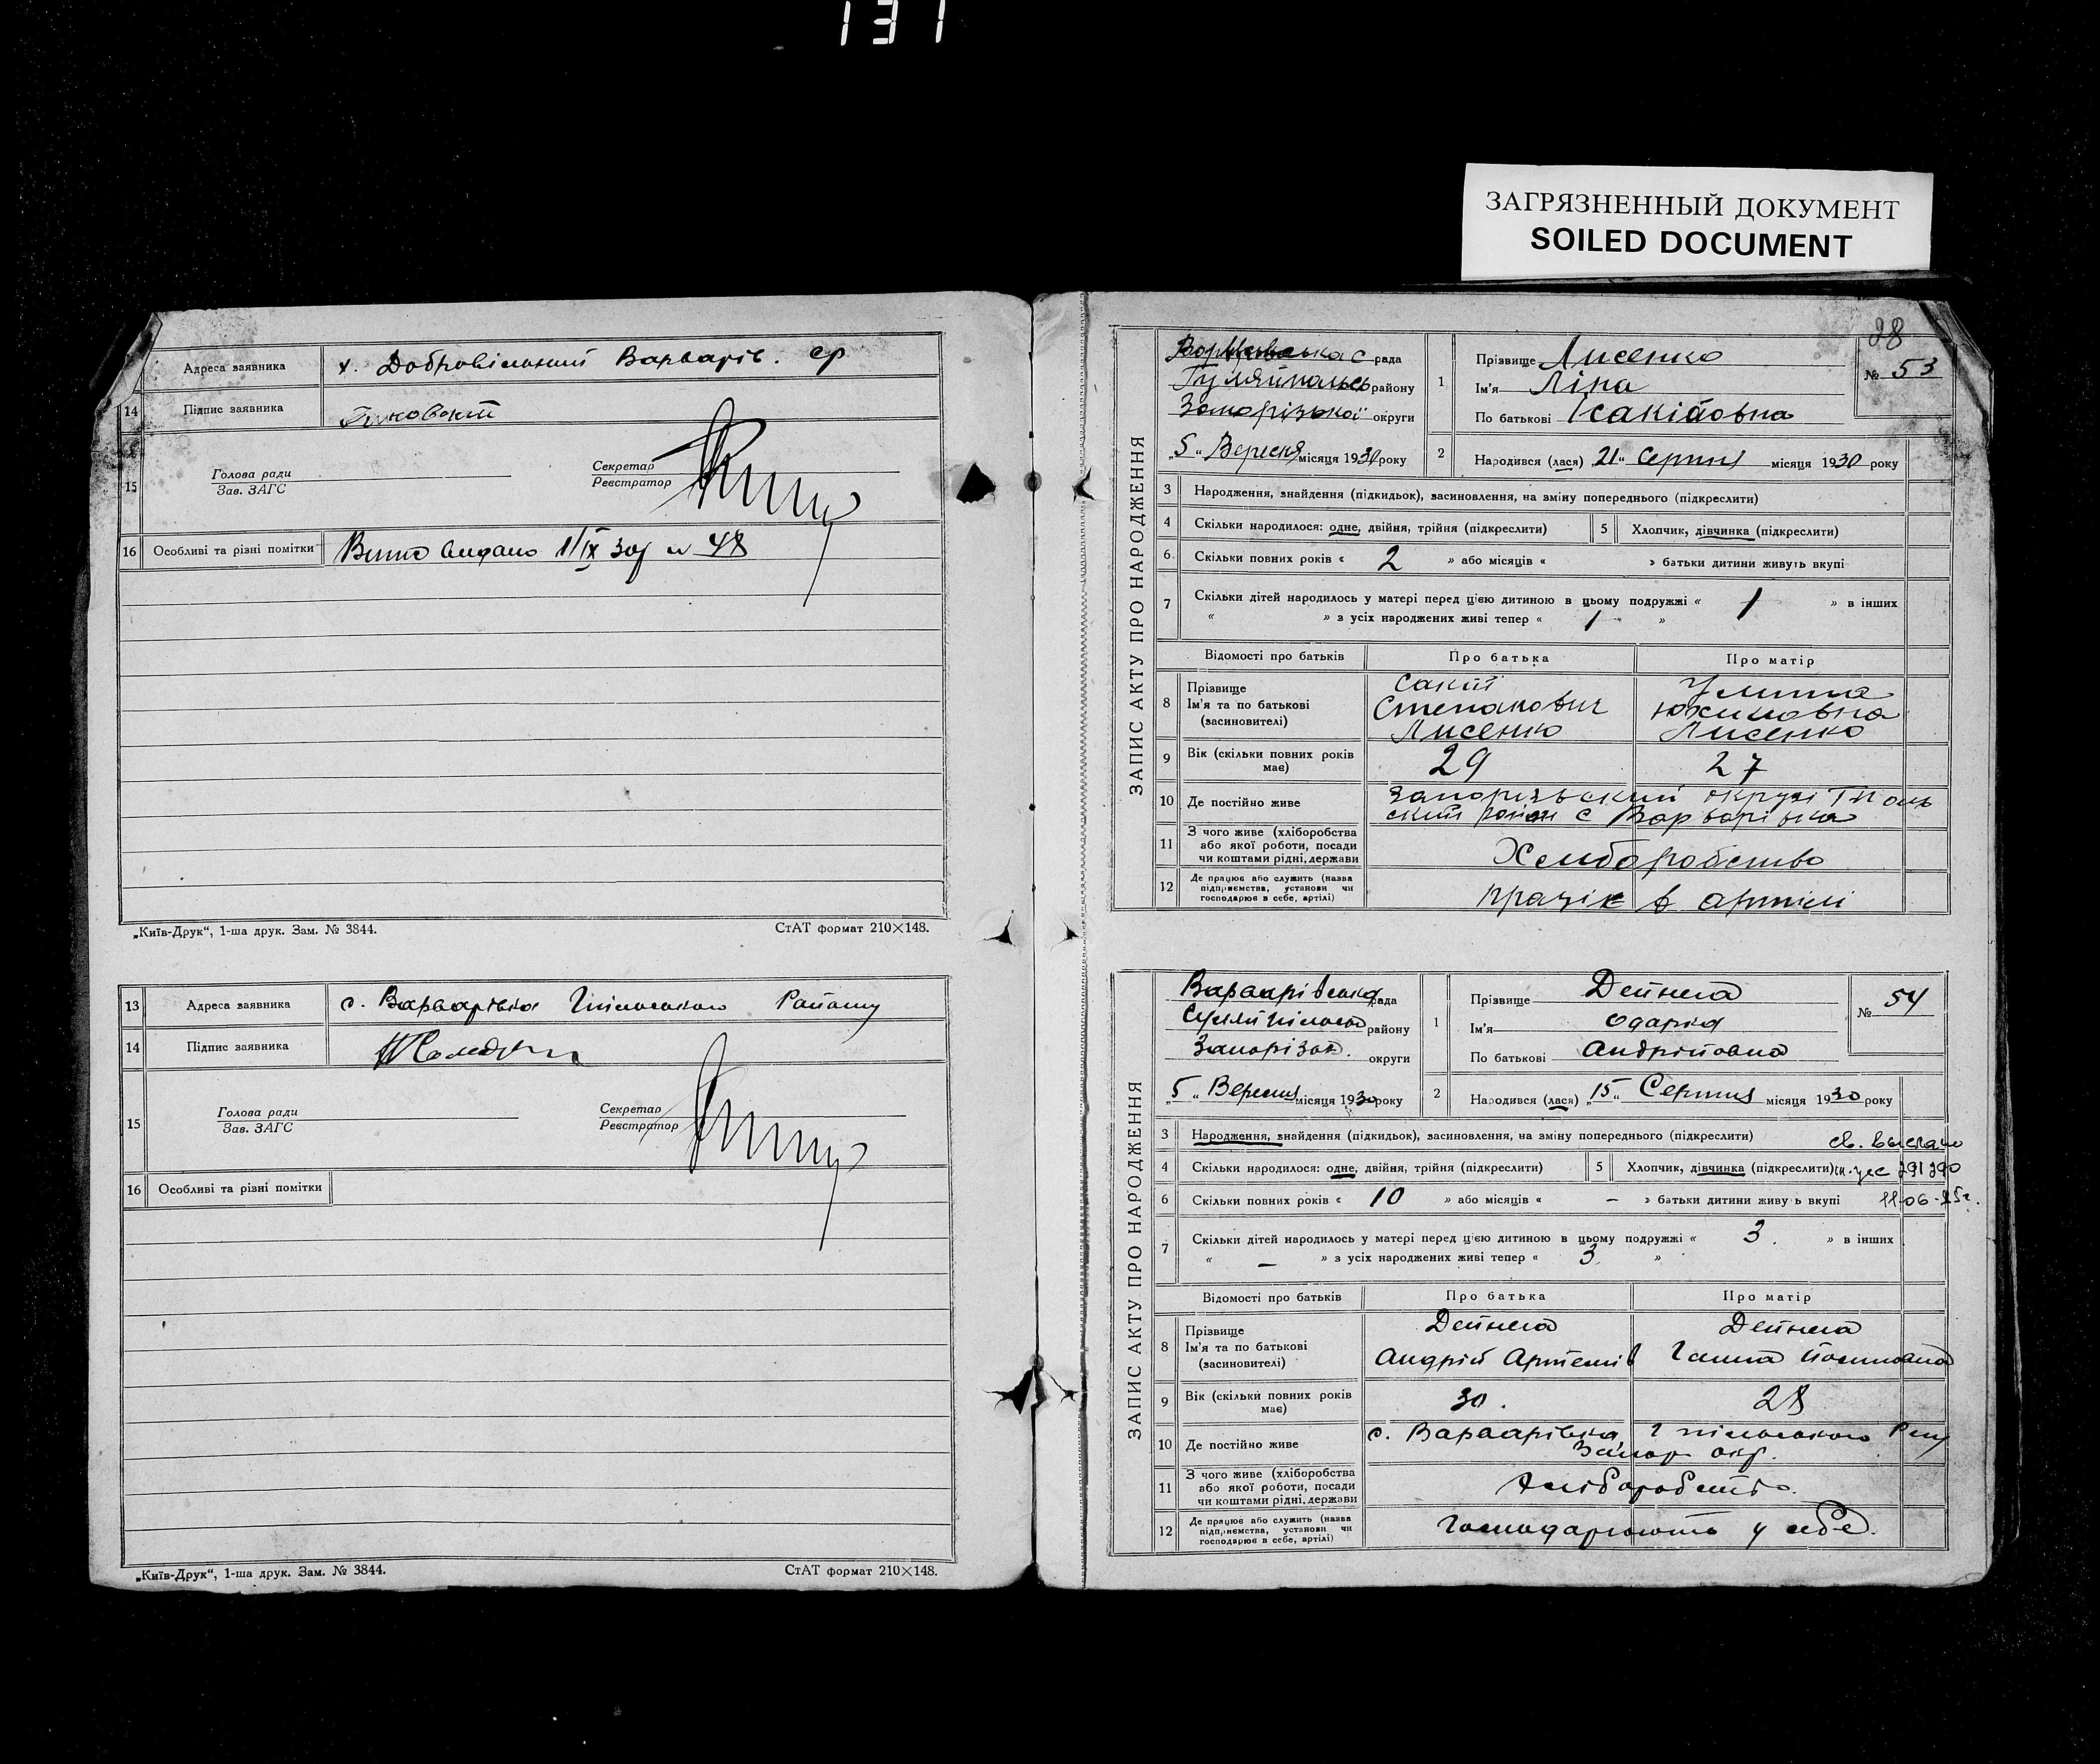 131
ЗАГРЯЗНЕННЫЙ ДОКУМЕНТ
SOILED DOCUMENT
Адреса заявника х. Добровільський Варварів. ср
14 Підпис заявника
15 Голова ради
Зав. ЗАГС
Секретар
Реєстратор
16 Особливі та різні помітки 1/IX 30 48
„Київ-Друк“, 1-ша друк. Зам. № 3844. СтАТ формат 210×148.
13 Адреса заявника с. Варварівка Гпільського Району
14 Підпис заявника
15 Голова ради
Зав. ЗАГС
Секретар
Реєстратор
16 Особливі та різні помітки
„Київ-Друк“, 1-ша друк. Зам. № 3844. СтАТ формат 210×148.
98
ЗАПИС АКТУ ПРО НАРОДЖЕННЯ
рада
району
Запорізької округи
„5“ Вересня місяця 1930 року
1 Прізвище Лисенко
Ім'я Ліна
По батькові Ісакійовна
№ 53
2 Народився (лася) „21“ Серпня місяця 1930 року
3 Народження, знайдення (підкидьок), засиновлення, на зміну попереднього (підкреслити)
4 Скільки народилося: одне, двійня, трійня (підкреслити) 5 Хлопчик, дівчинка (підкреслити)
6 Скільки повних років « 2 » або місяців « » батьки дитини живуть вкупі
7 Скільки дітей народилось у матері перед цією дитиною в цьому подружжі « 1 » в інших
« » з усіх народжених живі тепер « 1 »
Відомості про батьків Про батька Про матір
8 Прізвище
Ім'я та по батькові
(засиновителі)
Сакій
Степанович
Лисенко
Юхимовна
Лисенко
9 Вік (скільки повних років
має) 29 27
10 Де постійно живе Запорізьский округи
район с Варварівка
11 З чого живе (хліборобства
або якої роботи, посади
чи коштами рідні, держави
Хлиборобство
12 Де працює або служить (назва
підприємства, установи чи
господарює в себе, артілі)
працює в артілі
ЗАПИС АКТУ ПРО НАРОДЖЕННЯ
Варварівська рада
району
Запорізьк. округи
„5“ Вересня місяця 1930 року
1 Прізвище Дейнега
Ім'я Одарка
По батькові Андрійовна
№ 54
2 Народився (лася) „15“ Серпня місяця 1930 року
3 Народження, знайдення (підкидьок), засиновлення, на зміну попереднього (підкреслити)
св. выслано
4 Скільки народилося: одне, двійня, трійня (підкреслити) 5 Хлопчик, дівчинка (підкреслити)
6 Скільки повних років « 10 » або місяців « – » батьки дитини живу ь вкупі
7 Скільки дітей народилось у матері перед цією дитиною в цьому подружжі « 3. » в інших
« – » з усіх народжених живі тепер « 3 »
Відомості про батьків Про батька Про матір
8 Прізвище
Ім'я та по батькові
(засиновителі)
Дейнега Дейнега
Андрій Артемів Ганна
9 Вік (скільки повних років
має) 30. 28
10 Де постійно живе с. Варварівка Гпільського
Запор окр.
11 З чого живе (хліборобства
або якої роботи, посади
чи коштами рідні, держави
Хліборобство.
12 Де працює або служить (назва
підприємства, установи чи
господарює в себе, артілі)
Господарюють у себе.